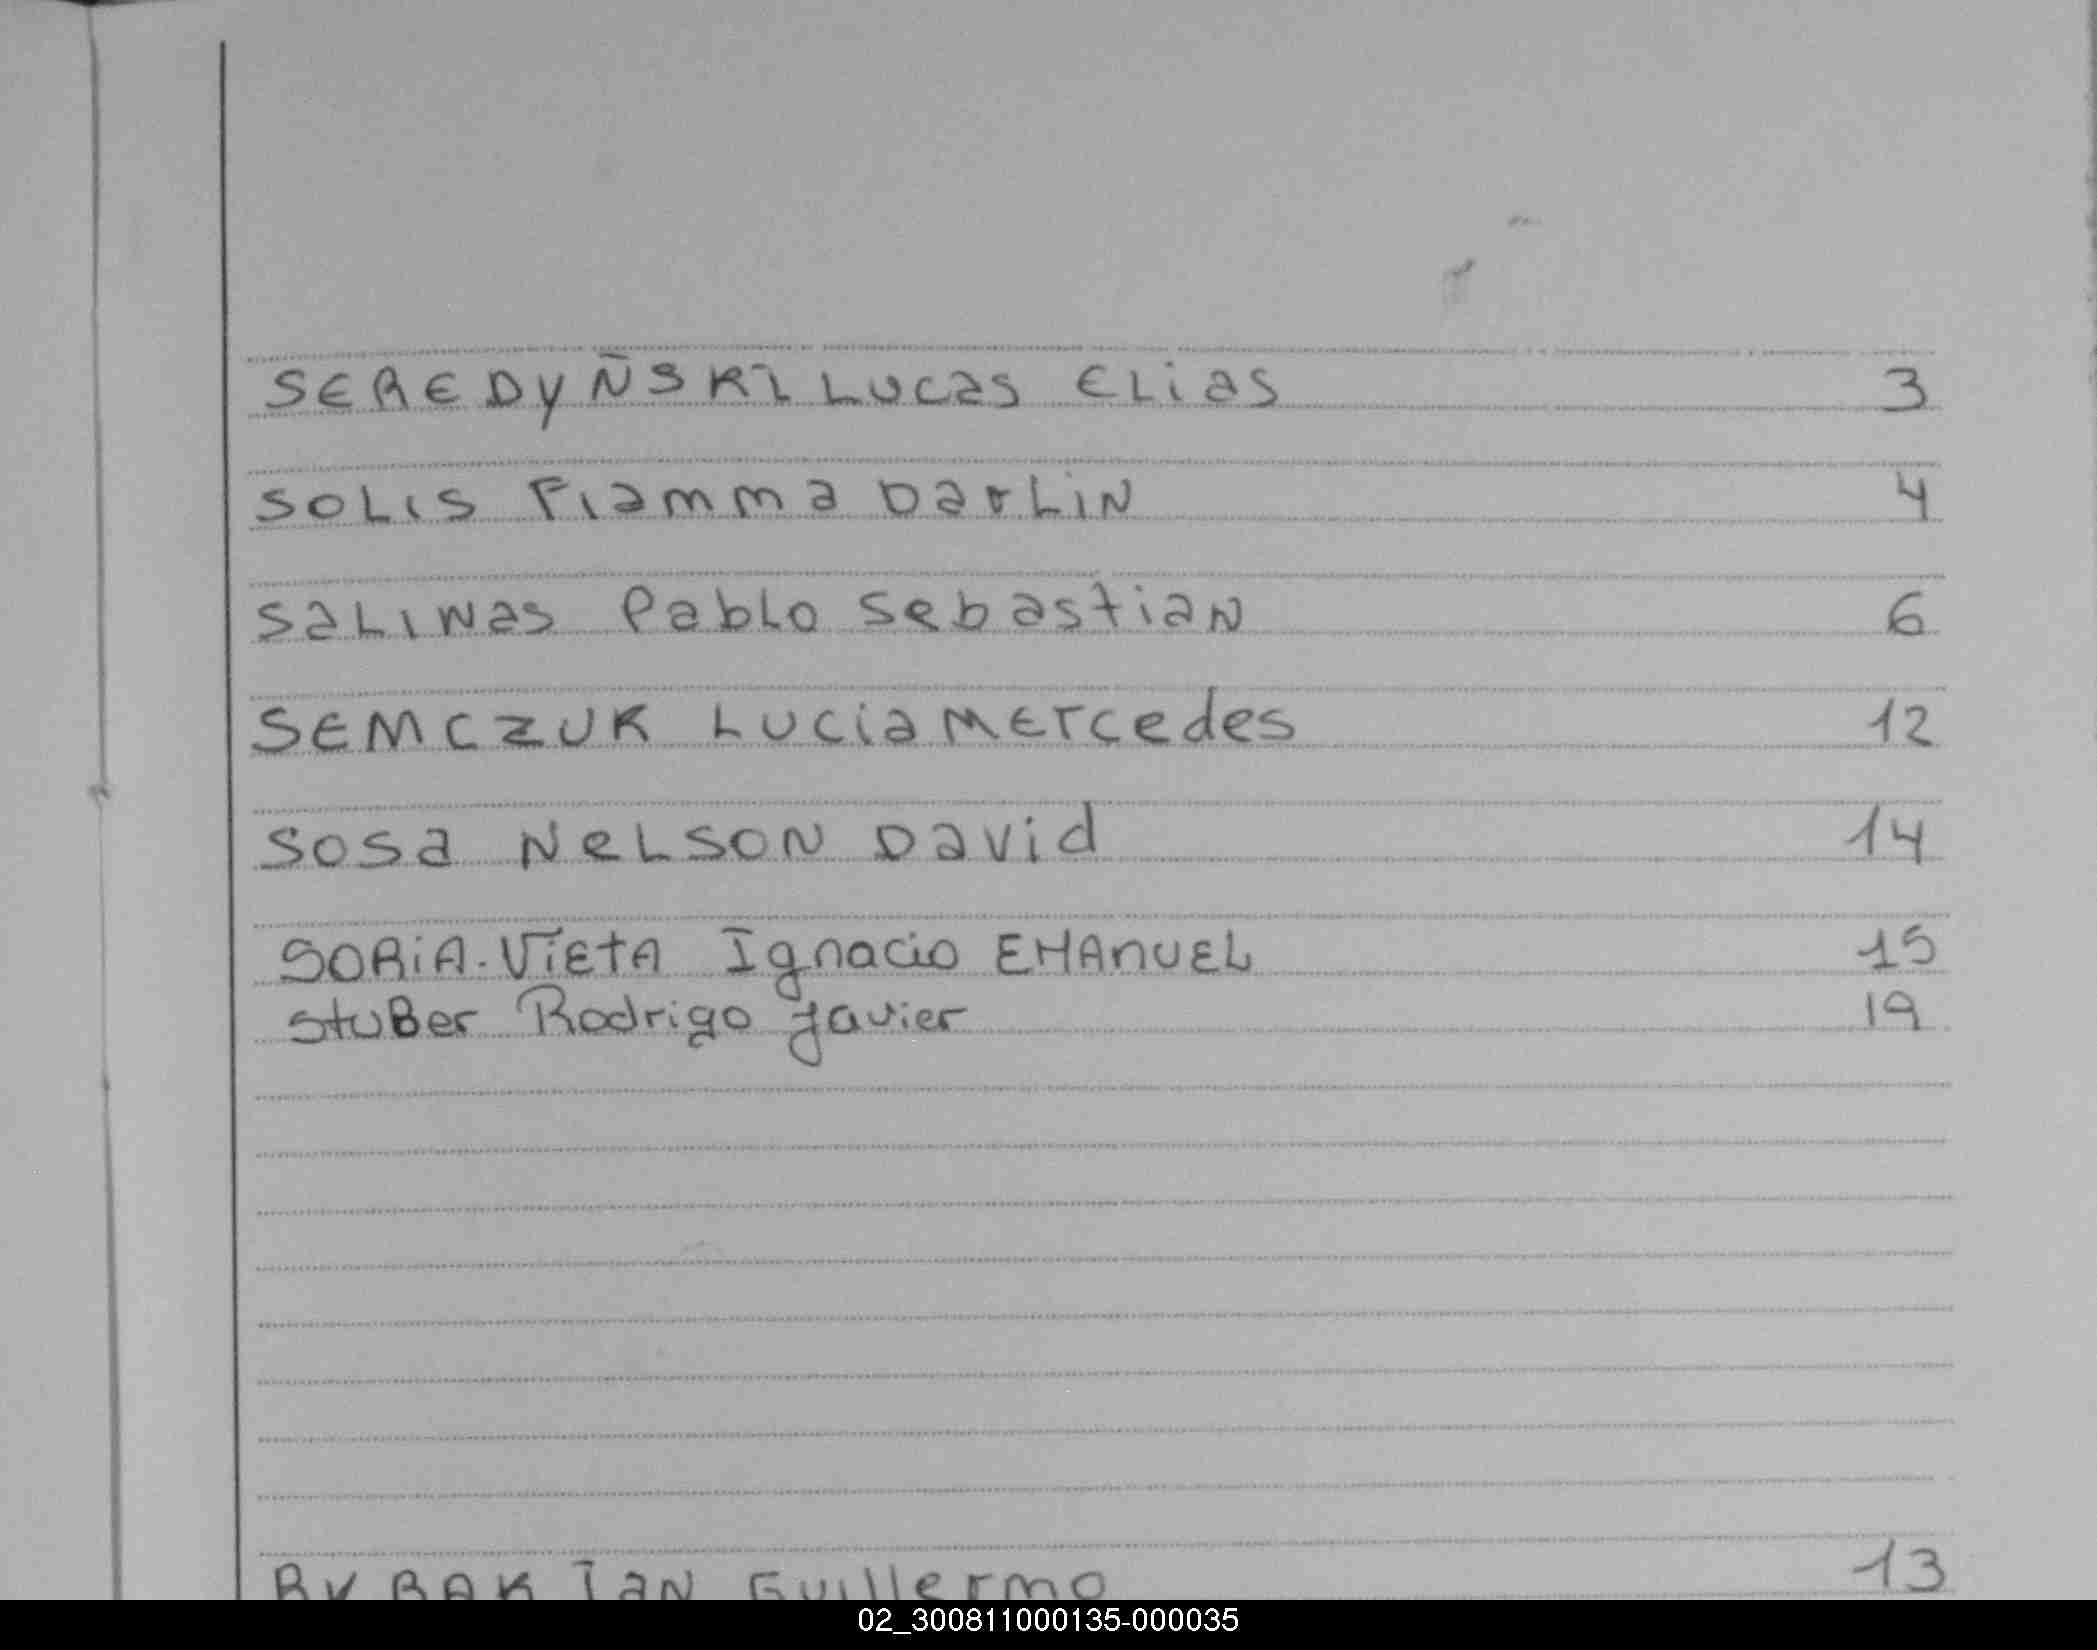 SEREDYÑSKI Lucas Elias 3
SOLIS Fiamma Darlin 4
SaLiNas Pablo Sebastian 6
SEMCZUK Lucia Mercedes 12
SOSa NeLSON David 14
SORiA-VIEtA Ignacio EMAnUEL 15
StuBer Rodrigo Javier 19
RYBAK Ian Guillermo 13
02_300811000135-000035